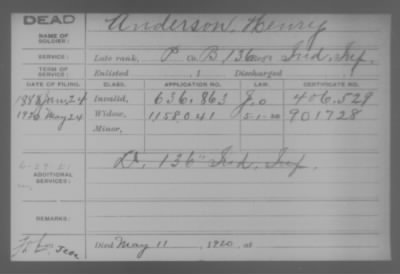 DEAD
NAME OF SOLDIER: Anderson, Henry
SERVICE: Late rank, P Co. B 136 Ind. Inf.
TERM OF SERVICE: Enlisted , 1 Discharged
DATE OF FILING. CLASS. APPLICATION NO. LAW. CERTIFICATE NO.
1888 Jan. 24 Invalid, 636.863 406.529
1920 May 24 Widow, 1158.041 5-1-20 901728
Minor,
ADDITIONAL SERVICES: D, 136" Ind. Inf.
REMARKS:
Died May 11, 1920, at